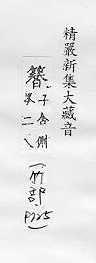 精嚴新集大藏音
簪
子含側
岑二
(竹部, P725)